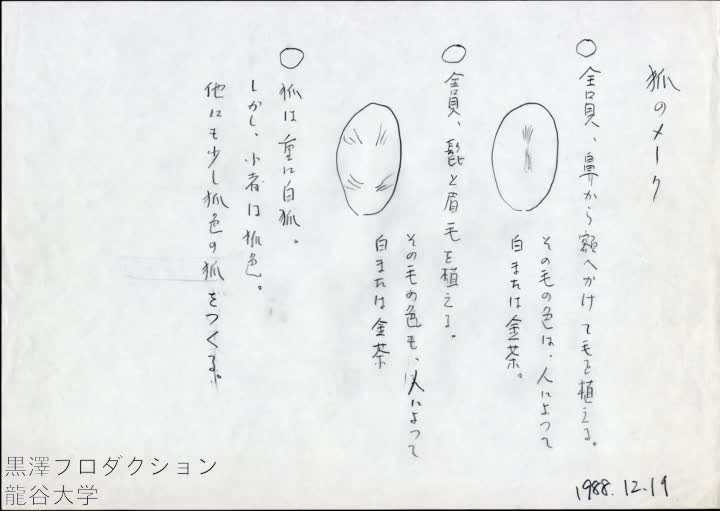 狐のメーク
○全員、鼻から額へかけて毛を植える。
その毛の色は、人によって
白または金茶。
○全員、髭と眉毛を植える。
その毛の色も、人によって
白または金茶
○狐は重に白狐。
しかし、小者は狐色。
他にも少し狐色の狐をつくる。
1988.12.19
黒澤フロダクション
龍谷大学